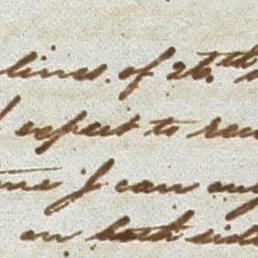 lines of 26th
I expect to
I can
on both side